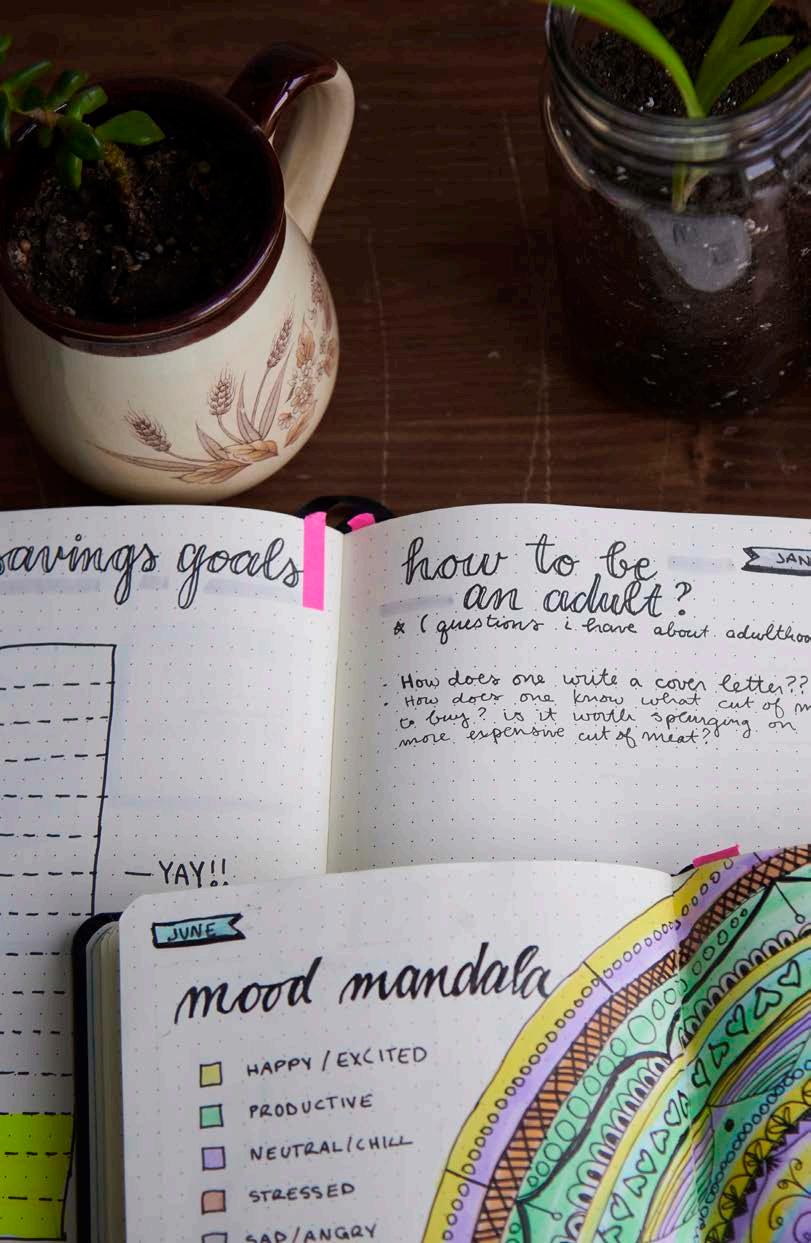 savings goals
YAY!!
how to be
an adult?
JAN
* (questions i have about adulthoo
- How does one write a cover letter??
- How does one know what cut of m
to buy? is it worth splurging on
more expensive cut of meat?
JUNE
mood mandala
HAPPY/EXCITED
PRODUCTIVE
NEUTRAL/CHILL
STRESSED
SAD/ANGRY